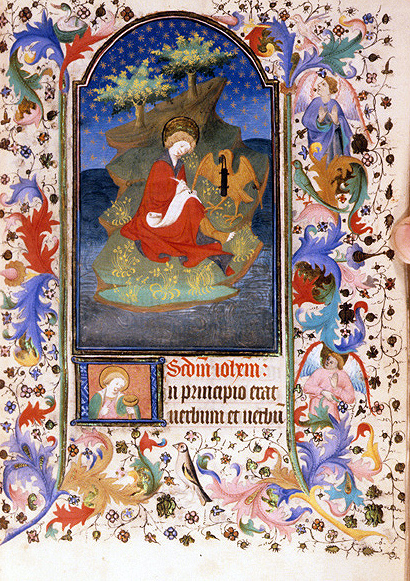 Scdm̄ iohem:
In principio erat
uerbum et uerbū